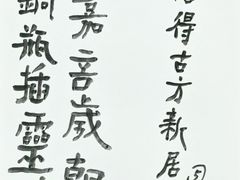 得古方新居
嘉音歲朝
銅瓶插靈